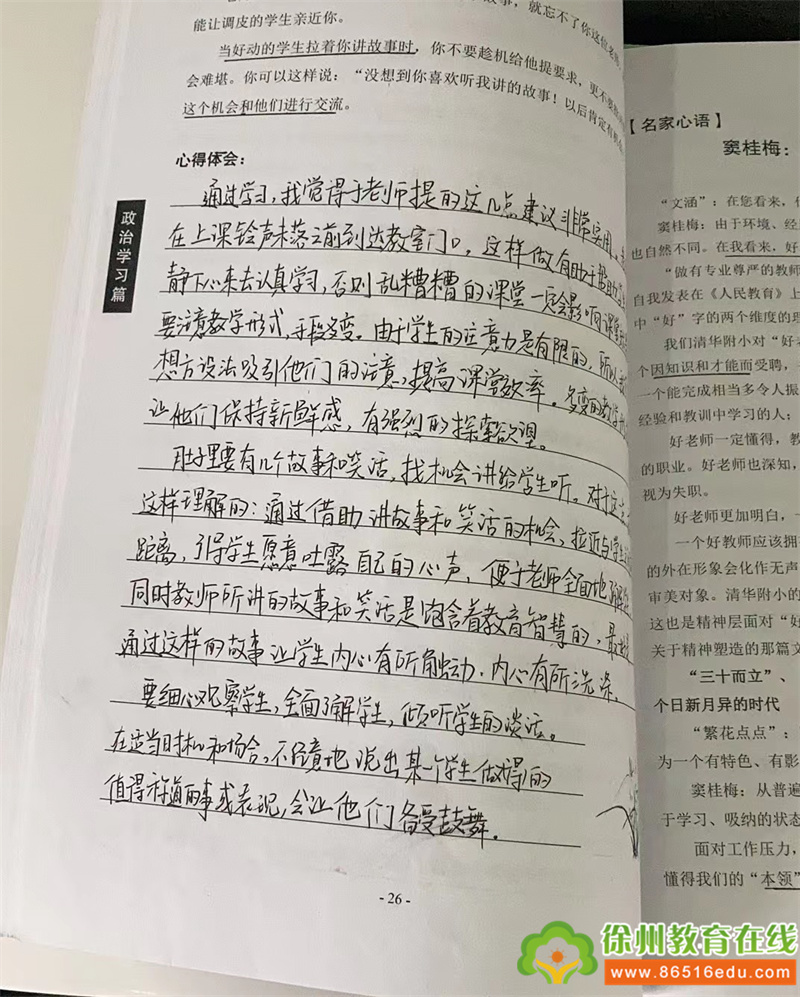 故事，就忘不了你这位老
能让调皮的学生亲近你。
当好动的学生拉着你讲故事时，你不要趁机给他提要求，更不要
会难堪。你可以这样说：“没想到你喜欢听我讲的故事！以后肯定有
这个机会和他们进行交流。
心得体会：
通过学习，我觉得于老师提的这几点建议非常实用，
在上课铃声未落之前到达教室门口，这样做有助于帮助
静下心来去认真学习，否则乱糟糟的课堂一定会影响课堂
要注意教学形式，手段多变。由于学生的注意力是有限的，所以
想方设法吸引他们的注意，提高课堂效率。多变的教学
让他们保持新鲜感，有强烈的探索欲望。
肚子里要有几个故事和笑话，找机会讲给学生听。对于这
这样理解的：通过借助讲故事和笑话的机会，拉近与学生
距离，引导学生愿意吐露自己的心声，便于老师全面地了解
同时教师所讲的故事和笑话是饱含着教育智慧的，最
通过这样的故事让学生内心有所触动，内心有所洗涤。
要细心观察学生，全面了解学生，倾听学生的谈话。
在适当时机和场合，不经意地说出某个学生做得的
值得称道的事或表现，会让他们备受鼓舞。
政治学习篇
- 26 -
【名家心语】
窦桂梅：
“文涵”：在您看来，
窦桂梅：由于环境、经
也自然不同。在我看来，好
“做有专业尊严的教师
自我发表在《人民教育》上
中“好”字的两个维度的理
我们清华附小对“好
个因知识和才能而受聘，
一个能完成相当多令人振
经验和教训中学习的人；
好老师一定懂得，教
的职业。好老师也深知，
视为失职。
好老师更加明白，一
一个好教师应该拥
的外在形象会化作无声
审美对象。清华附小的
这也是精神层面对“好
关于精神塑造的那篇文
“三十而立”、
个日新月异的时代
“繁花点点”：
为一个有特色、有影
窦桂梅：从普通
于学习、吸纳的状态
面对工作压力，
懂得我们的“本领”
徐州教育在线
www.86516edu.com